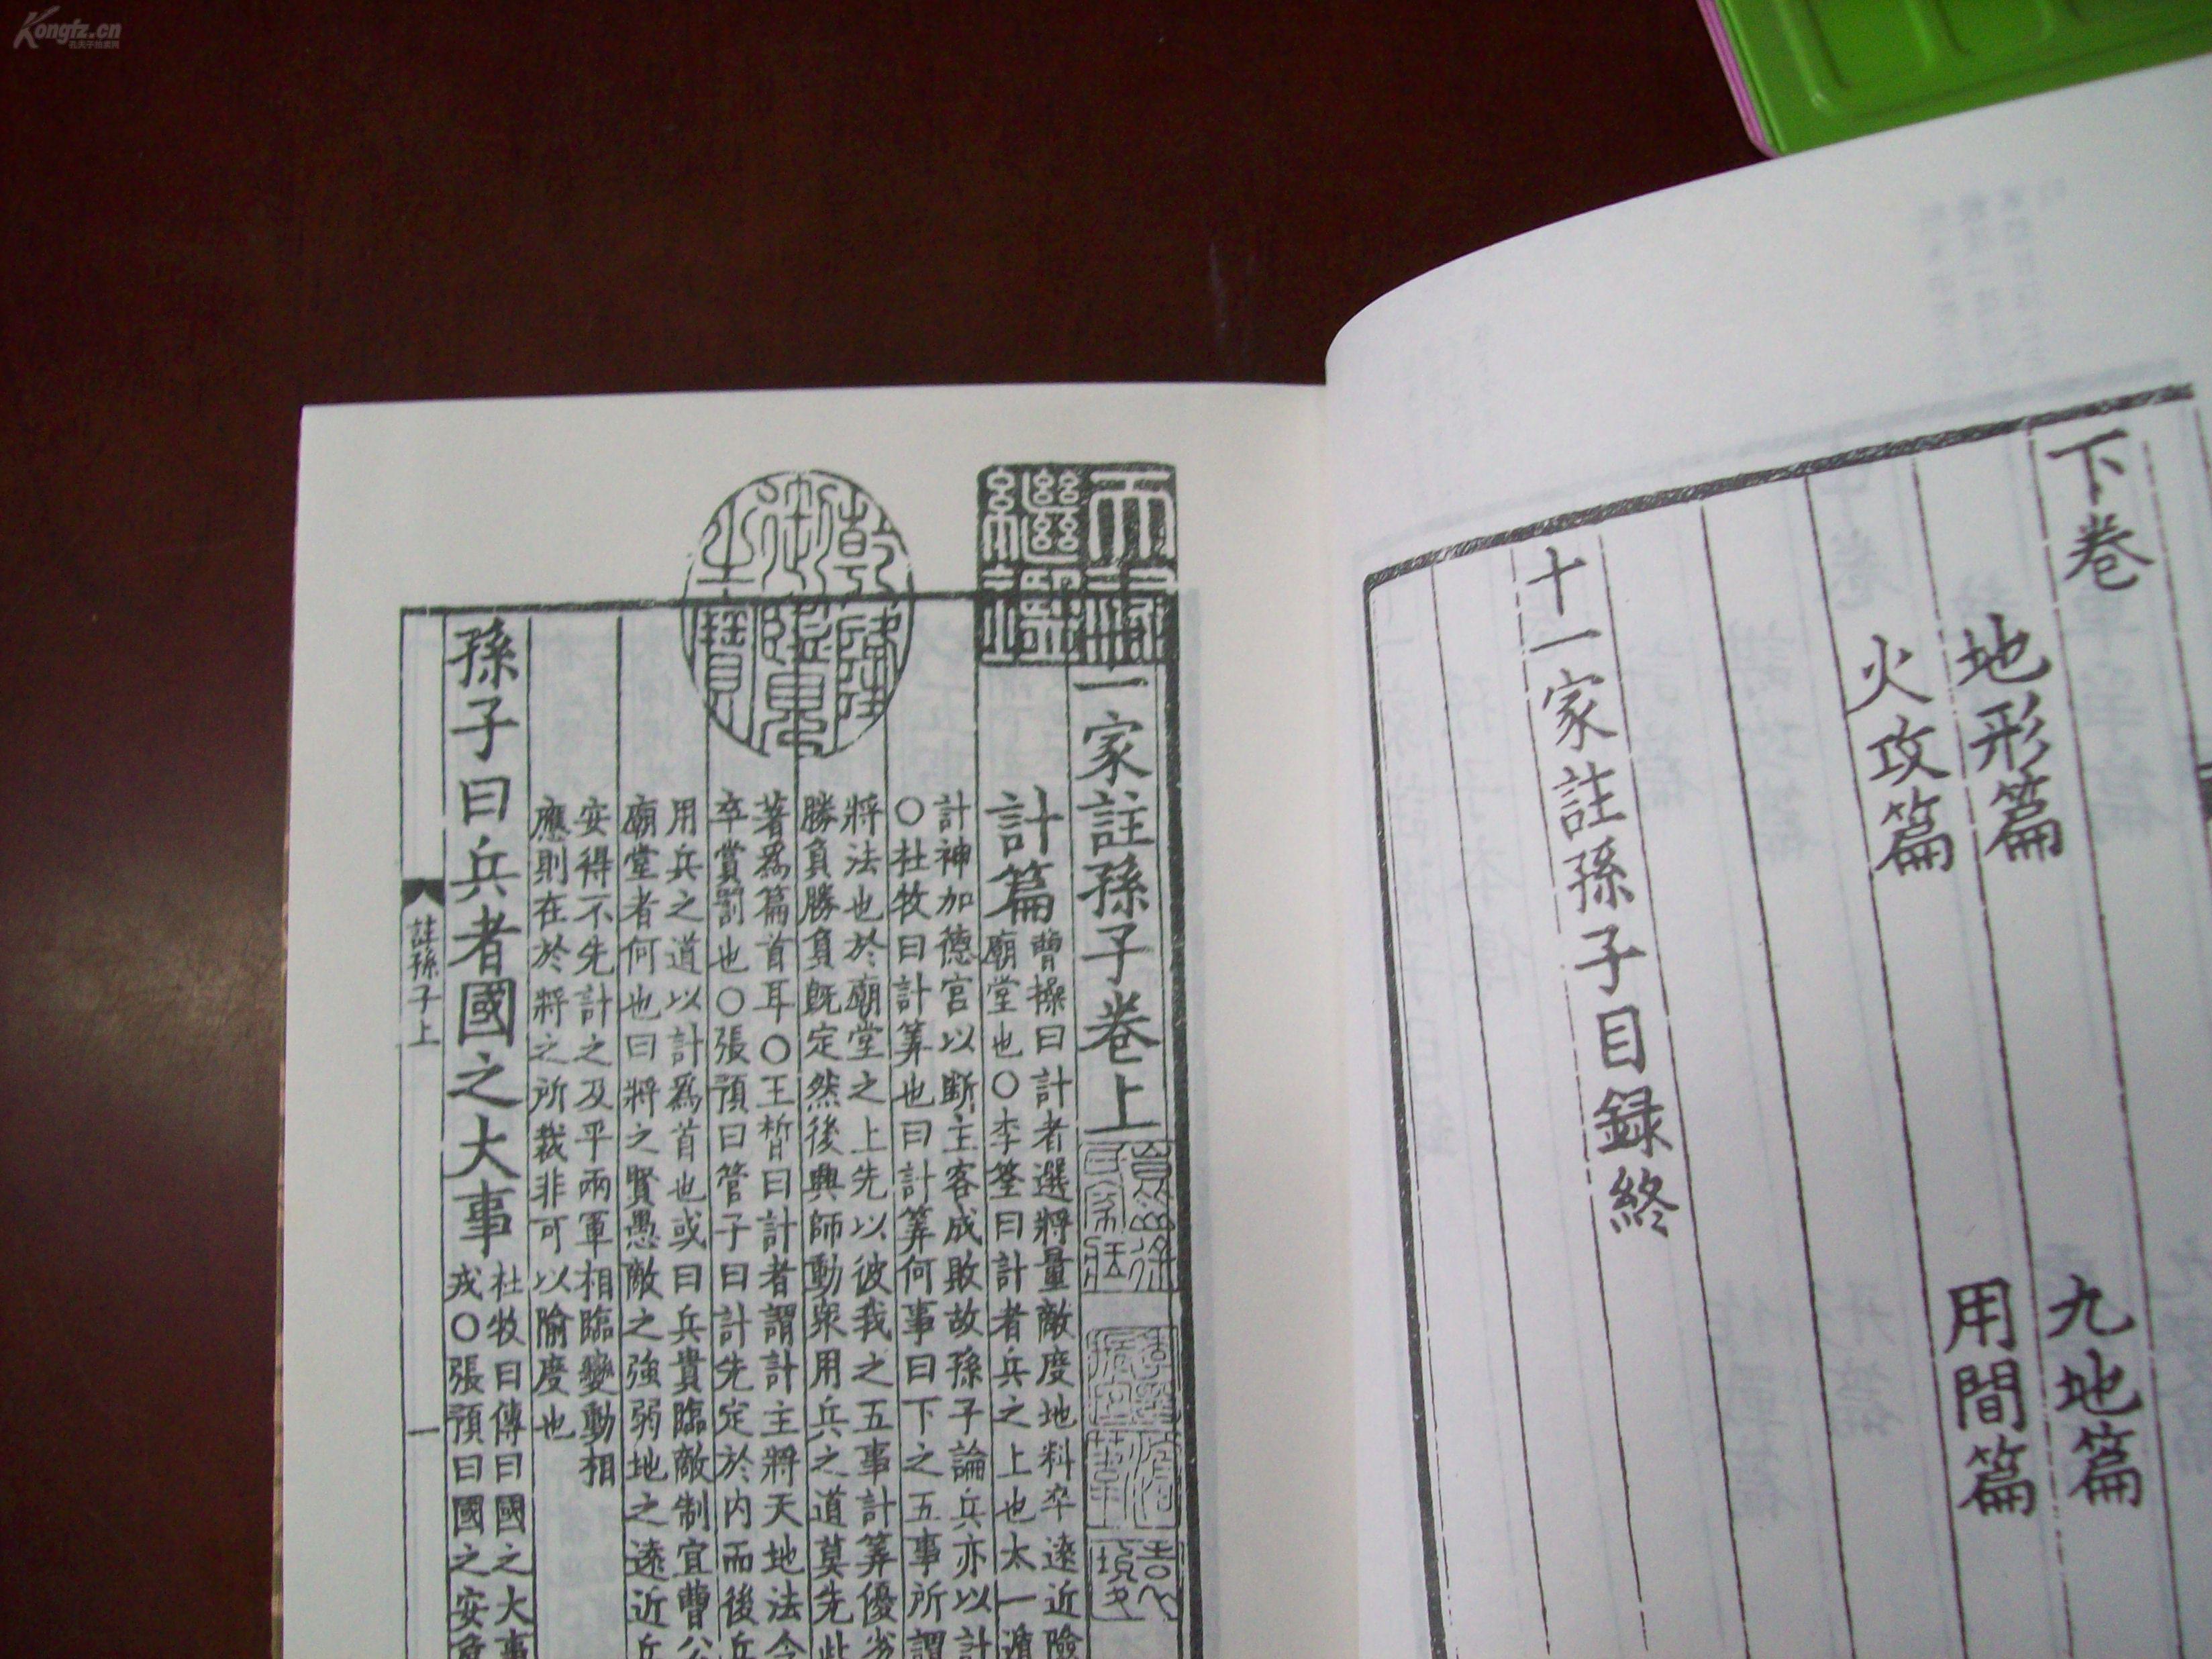 Kongfz.cn
孔夫子拍卖网
下卷
地形篇 九地篇
火攻篇 用間篇
十一家註孫子目録終
天禄繼鑑
乾隆御覽之寶
十一家註孫子卷上
計篇
曹操曰計者選將量敵度地料卒遠近險
廟堂也○李筌曰計者兵之上也太一遁
計神加德宮以斷主客成敗故孫子論兵亦以計
○杜牧曰計算也曰計算何事曰下之五事所謂
將法也於廟堂之上先以彼我之五事計算優劣
勝負勝負既定然後興師動衆用兵之道莫先此
著爲篇首耳○王晳曰計者謂計主將天地法令
卒賞罰也○張預曰管子曰計先定於內而後兵
用兵之道以計爲首也或曰兵貴臨敵制宜曹公
廟堂者何也曰將之賢愚敵之強弱地之遠近兵
安得不先計之及乎兩軍相臨變動相
應則在於將之所裁非可以隃度也
孫子曰兵者國之大事
杜牧曰傳曰國之大事
戎○張預曰國之安危
註孫子上
一